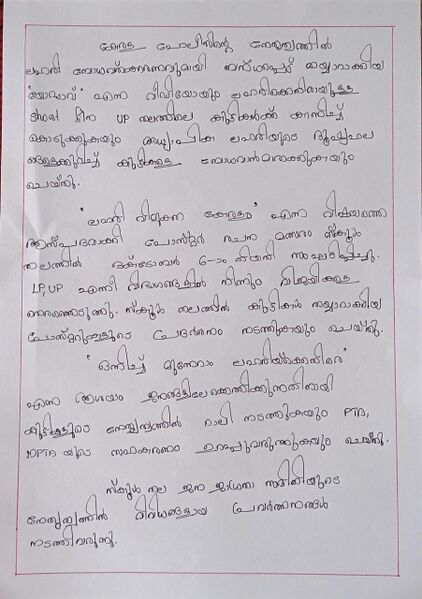 കേരള പോലീസിന്റെ നേതൃത്വത്തിൽ
ലഹരി ബോധവത്ക്കരണവുമായി ബന്ധപ്പെട്ട് തയ്യാറാക്കിയ
'യോദ്ധാവ്' എന്ന വീഡിയോയും ലഹരിക്കെതിരായുള്ള
short film UP തലത്തിലെ കുട്ടികൾക്ക് കാണിച്ച്
കൊടുക്കുകയും അധ്യാപിക ലഹരിയുടെ ദൂഷ്യഫല
ങ്ങളെക്കുറിച്ച് കുട്ടികളെ ബോധവാൻമാരാക്കുകയും
ചെയ്തു.
'ലഹരി വിമുക്ത കേരളം' എന്ന വിഷയത്തെ
ആസ്പദമാക്കി പോസ്റ്റർ രചന മത്സരം സ്കൂൾ
തലത്തിൽ ഒക്ടോബർ 6-ാം തീയതി സംഘടിപ്പിച്ചു.
LP, UP എന്നീ വിഭാഗങ്ങളിൽ നിന്നും വിജയികളെ
തെരഞ്ഞെടുത്തു. സ്കൂൾ തലത്തിൽ കുട്ടികൾ തയ്യാറാക്കിയ
പോസ്റ്ററുകളുടെ പ്രദർശനം നടത്തുകയും ചെയ്തു.
'ഒന്നിച്ച് മുന്നേറാം ലഹരിയ്ക്കെതിരെ'
എന്ന ആശയം ജനങ്ങളിലേക്കെത്തിക്കുന്നതിനായി
കുട്ടികളുടെ നേതൃത്വത്തിൽ റാലി നടത്തുകയും PTA,
MPTA യുടെ സഹകരണം ഉറപ്പുവരുത്തുകയും ചെയ്തു.
സ്കൂൾ തല ജന ജാഗ്രതാ സമിതിയുടെ
നേതൃത്വത്തിൽ വിവിധങ്ങളായ പ്രവർത്തനങ്ങൾ
നടത്തിവരുന്നു.